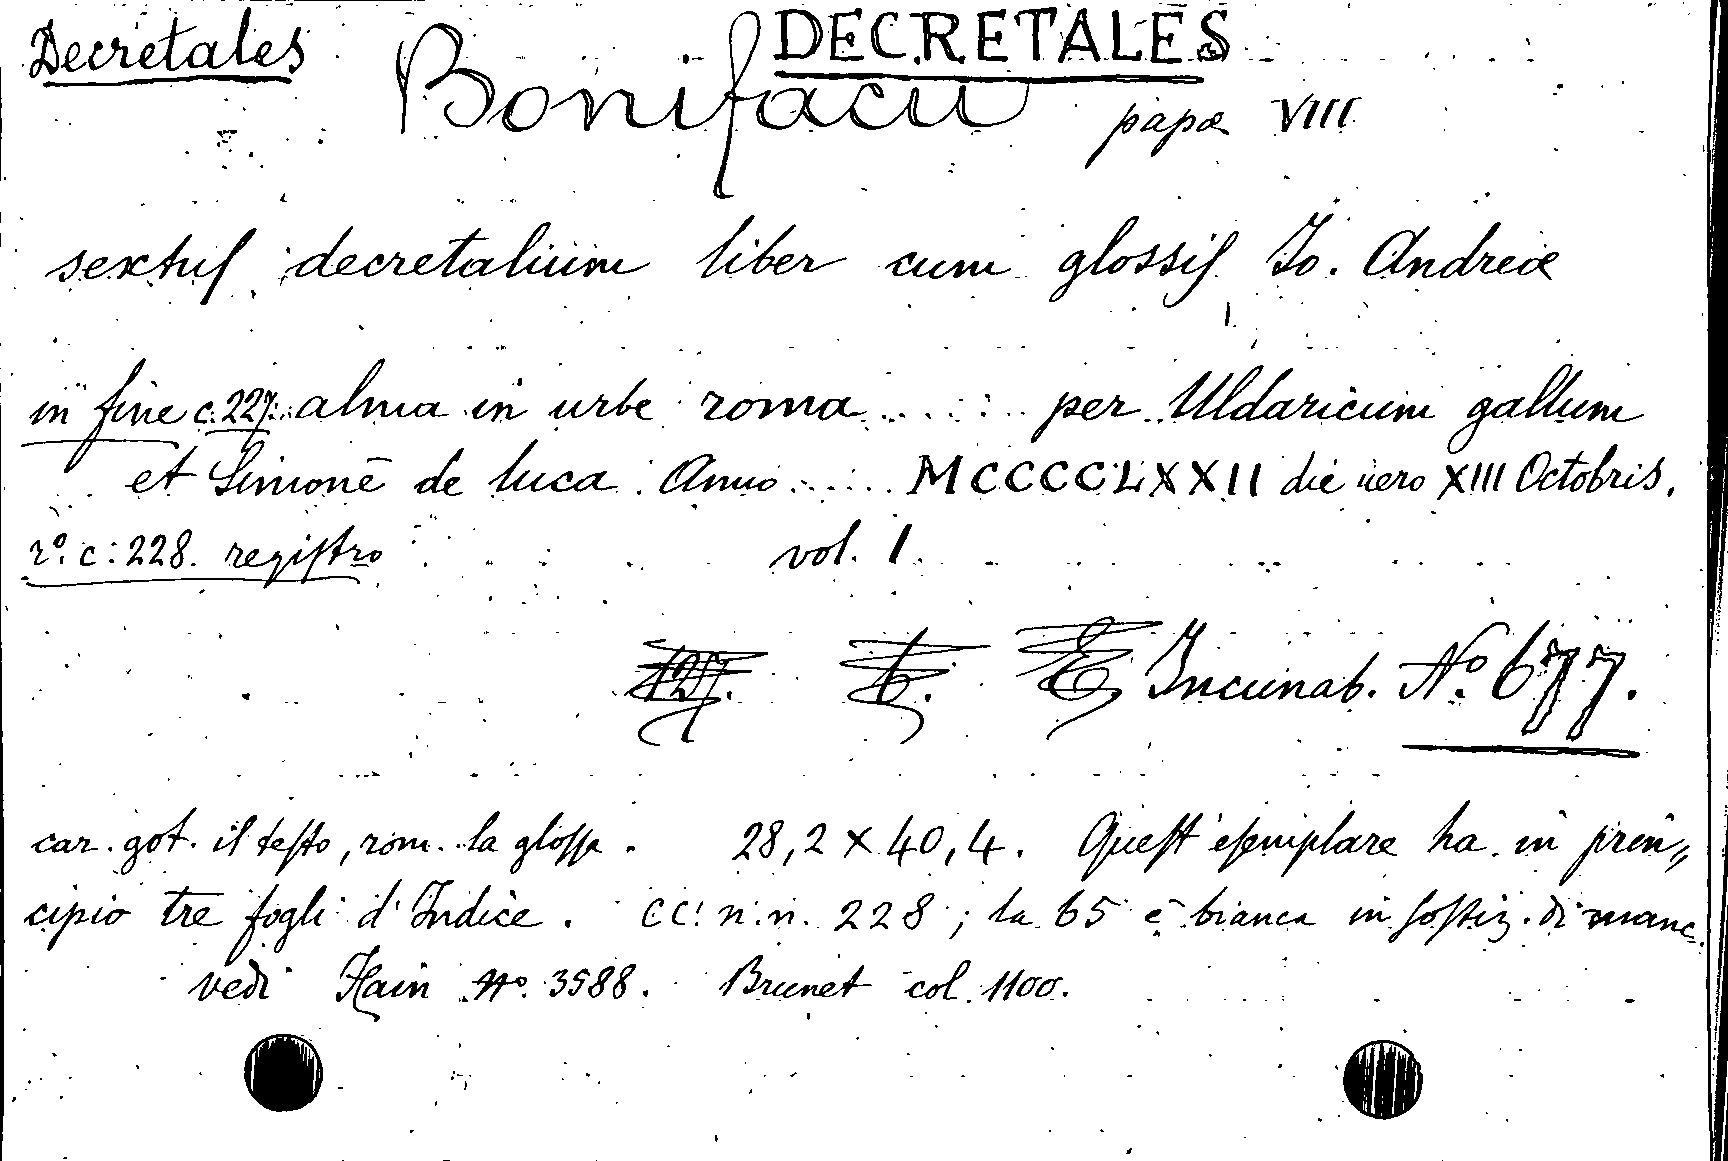 Decretales
DECRETALES
Bonifacii papæ VIII
sextus decretalium liber cum glossis Io. Andreæ
in fine c. 227. alma in urbe roma ..... per Uldaricum gallum
et Simonē de luca. Anno ..... MCCCCLXXII die uero XIII Octobris.
rº. c: 228. registro vol. 1.
Incunab. Nº. 677.
car. got. il testo, rom. la glossa. 28,2 × 40,4. Quest'esemplare ha in prin„
cipio tre fogli d'Indice. CC. n. n. 228; la 65 è bianca in sostiz. di manc.
vedi Hain Nº. 3588. Brunet col. 1100.